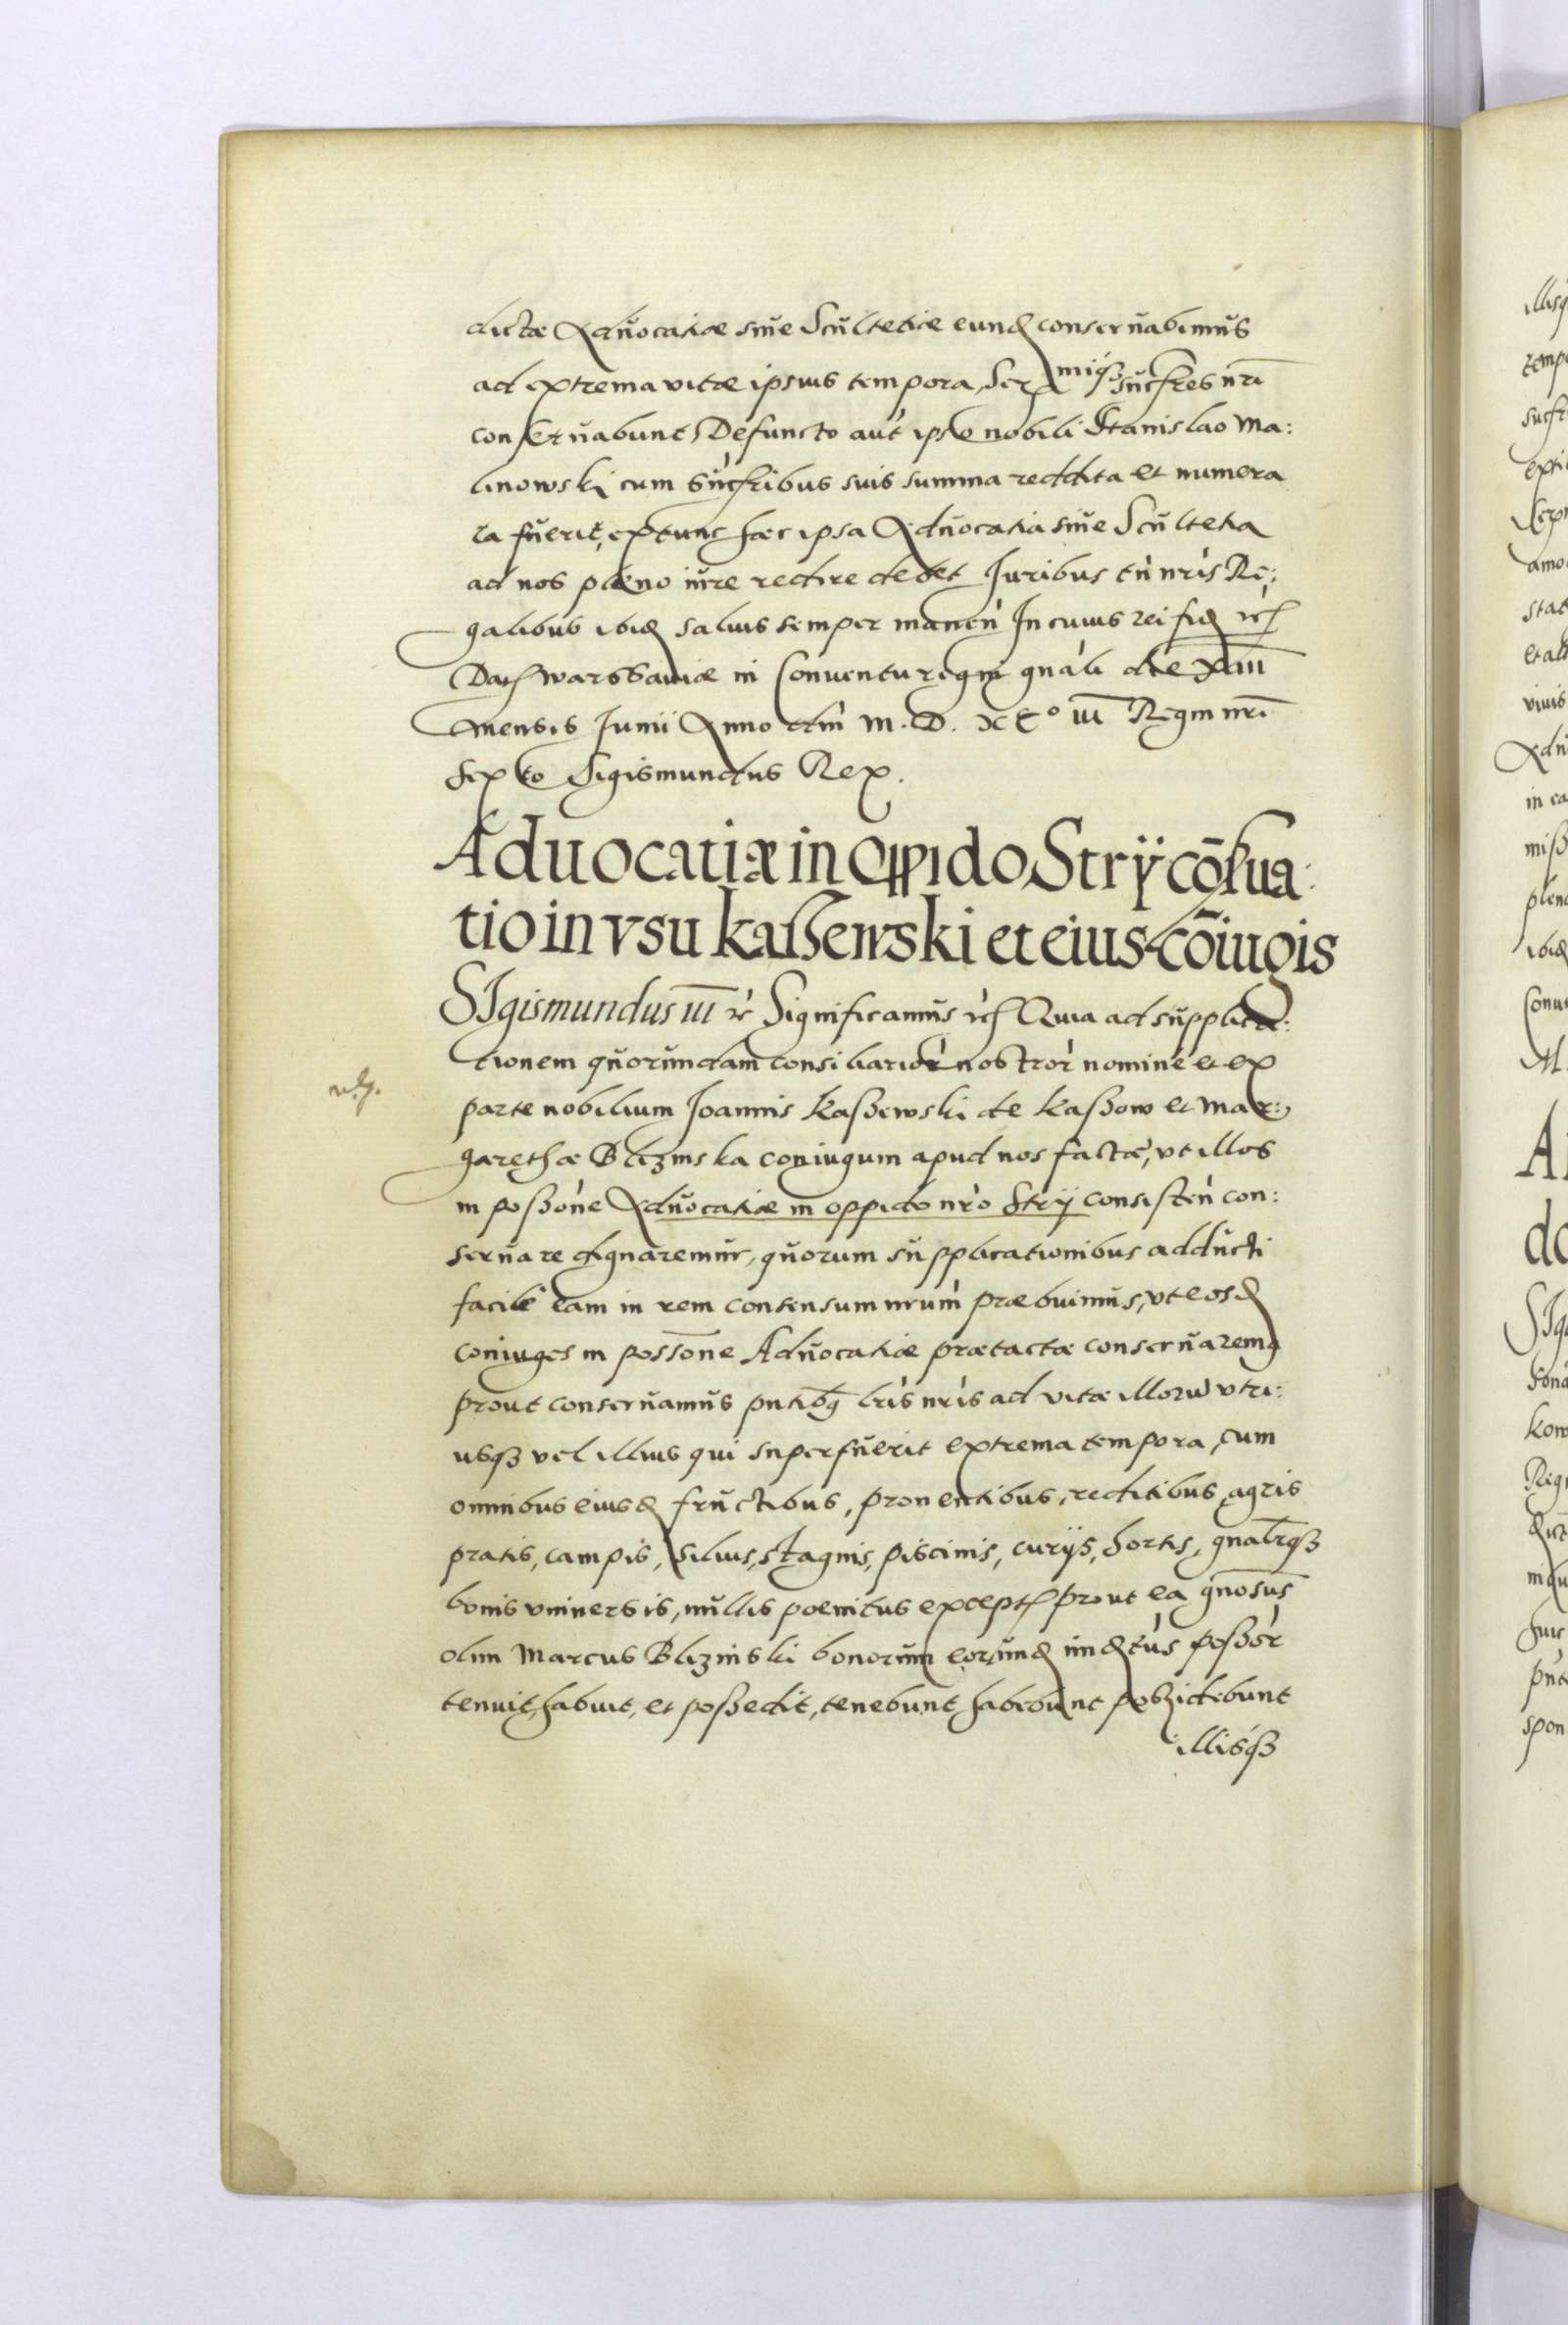 dictæ Aduocatiæ siue Scultetiæ eund conseruabimus
ad extrema vitæ ipsius tempora, Ser miq3 succres nri
conseruabunt, Defuncto aut ipso nobili Stanislao Ma:
linowski cum succribus suis summa reddita et numera
ta fuerit, extunc hæc ipsa Aduocatia siue Scultetia
ad nos pleno iure redire debet Juribus tn nris Re:
galibus ibid saluis semper manen In cuius rei fid etc
Dat Warssauiæ in Conuentu regni gnali die XIIII
mensis Junii Anno dni M. D. XCº III Regni nri
sexto Sigismundus Rex.
Aduocatiæ in oppido Strÿ cōserua:
tio in vsu kassewski et eius cōiugis
SIgismundus III etc Significamus etc Quia ad supplica:
tionem quorundam consiliarior nostror nomine et ex
parte nobilium Joannis Kaßewski de Kaßow et Mar:
garethæ Blizinska coniugum apud nos factæ, vt illos
in poßone Aduocatiæ in oppido nro Strÿ consisten con:
seruare dignaremur, quorum supplicationibus adducti
facile eam in rem consensum nrum præbuimus, vt eosd
coniuges in possone Aduocatiæ prætactæ conseruaremg
prout conseruamus pntibg lris nris ad vitæ illoru vtri:
usq3 vel illius qui superfuerit extrema tempora, cum
omnibus eiusd fructibus, prouentibus, reditibus, agris
pratis, campis, siluis, stagnis, piscinis, curijs, hortis, gnalrq3
bonis vniuersis, nullis poenitus except prout ea gnosus
olim Marcus Blizinski bonorum eorund imdtus poßor
tenuit, habuit, et poßedit, tenebunt habebunt poßidebunt
illisq3